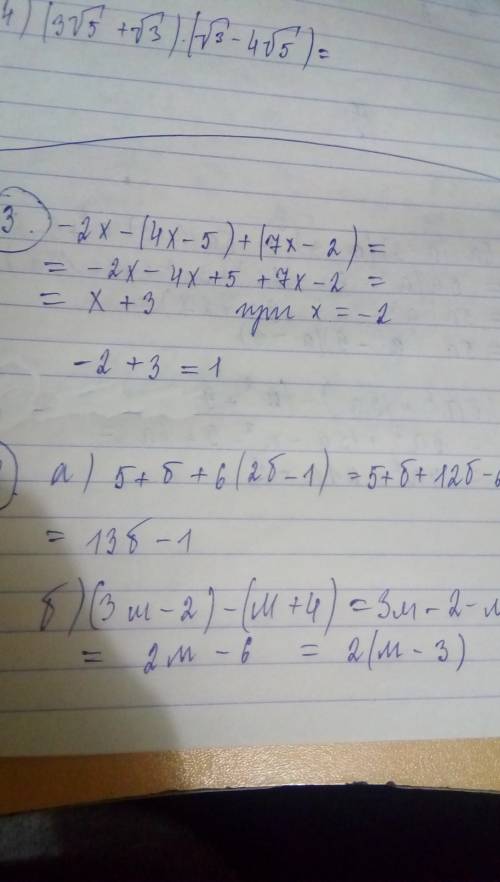 4) (3√5 + √3)·(√3 - 4√5) =
3. -2x - (4x - 5) + (7x - 2) =
= -2x - 4x + 5 + 7x - 2 =
= x + 3 при x = -2
-2 + 3 = 1
а) 5 + б + 6(2б - 1) = 5 + б + 12б - 6
= 13б - 1
б) (3м - 2) - (м + 4) = 3м - 2 - м
= 2м - 6 = 2(м - 3)